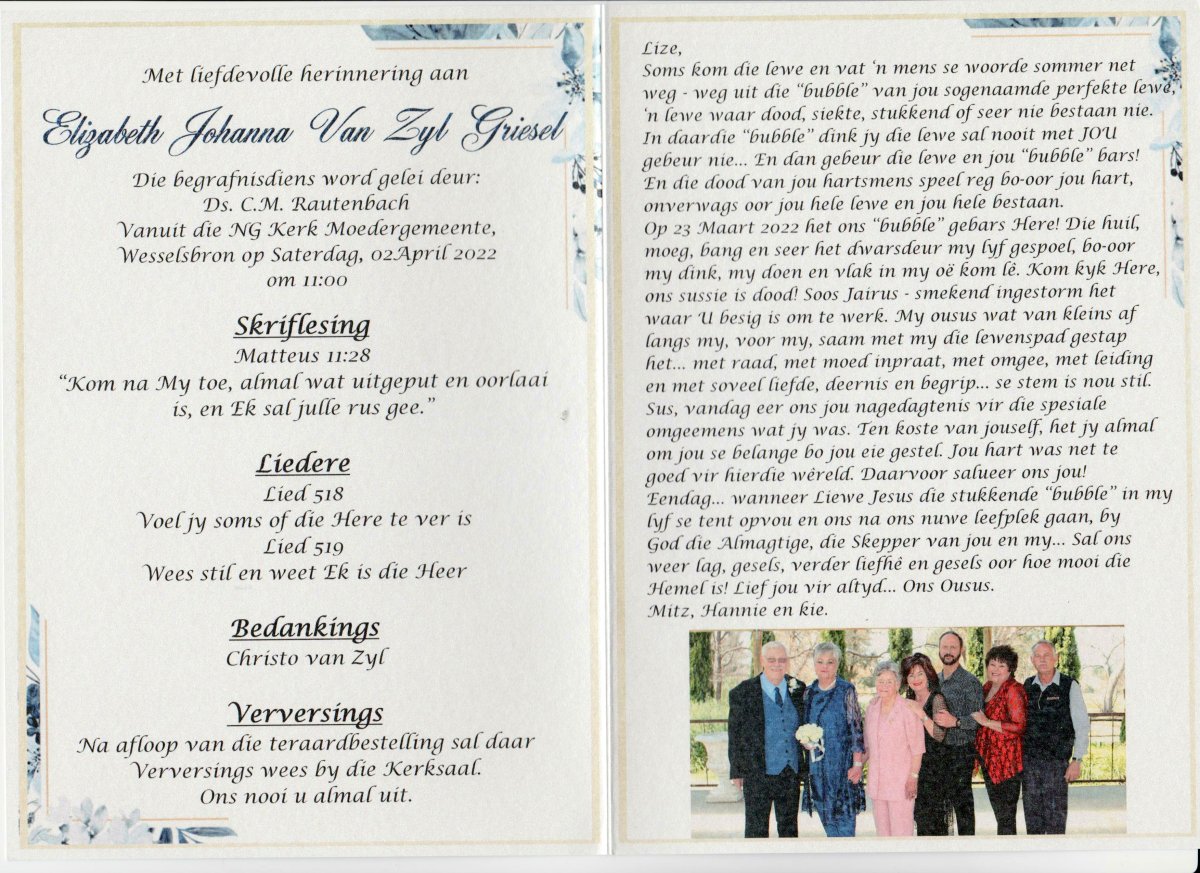 Met liefdevolle herinnering aan
Elizabeth Johanna Van Zyl Griesel
Die begrafnisdiens word gelei deur:
Ds. C.M. Rautenbach
Vanuit die NG Kerk Moedergemeente,
Wesselsbron op Saterdag, 02April 2022
om 11:00
Skriflesing
Matteus 11:28
“Kom na My toe, almal wat uitgeput en oorlaai
is, en Ek sal julle rus gee.”
Liedere
Lied 518
Voel jy soms of die Here te ver is
Lied 519
Wees stil en weet Ek is die Heer
Bedankings
Christo van Zyl
Verversings
Na afloop van die teraardbestelling sal daar
Verversings wees by die Kerksaal.
Ons nooi u almal uit.
Lize,
Soms kom die lewe en vat ‘n mens se woorde sommer net
weg - weg uit die “bubble” van jou sogenaamde perfekte lewe,
‘n lewe waar dood, siekte, stukkend of seer nie bestaan nie.
In daardie “bubble” dink jy die lewe sal nooit met JOU
gebeur nie... En dan gebeur die lewe en jou “bubble” bars!
En die dood van jou hartsmens speel reg bo-oor jou hart,
onverwags oor jou hele lewe en jou hele bestaan.
Op 23 Maart 2022 het ons “bubble” gebars Here! Die huil,
moeg, bang en seer het dwarsdeur my lyf gespoel, bo-oor
my dink, my doen en vlak in my oë kom lê. Kom kyk Here,
ons sussie is dood! Soos Jairus - smekend ingestorm het
waar U besig is om te werk. My ousus wat van kleins af
langs my, voor my, saam met my die lewenspad gestap
het... met raad, met moed inpraat, met omgee, met leiding
en met soveel liefde, deernis en begrip... se stem is nou stil.
Sus, vandag eer ons jou nagedagtenis vir die spesiale
omgeemens wat jy was. Ten koste van jouself, het jy almal
om jou se belange bo jou eie gestel. Jou hart was net te
goed vir hierdie wêreld. Daarvoor salueer ons jou!
Eendag... wanneer Liewe Jesus die stukkende “bubble” in my
lyf se tent opvou en ons na ons nuwe leefplek gaan, by
God die Almagtige, die Skepper van jou en my... Sal ons
weer lag, gesels, verder liefhê en gesels oor hoe mooi die
Hemel is! Lief jou vir altyd... Ons Ousus.
Mitz, Hannie en kie.